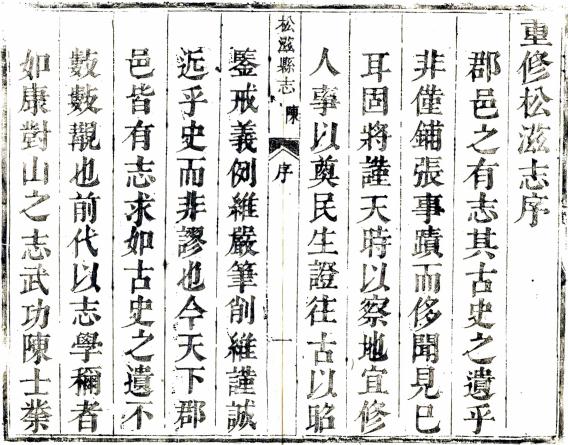 重修松滋志序
郡邑之有志其古史之遺乎
非僅鋪張事蹟而侈聞見已
耳固將謹天時以察地宜修
人事以奠民生證往古以昭
松滋縣志 陳 序 一
鑒戒義例維嚴筆削維謹誠
近乎史而非謬也今天下郡
邑皆有志求如古史之遺不
數數覯也前代以志學稱者
如康對山之志武功陳士業